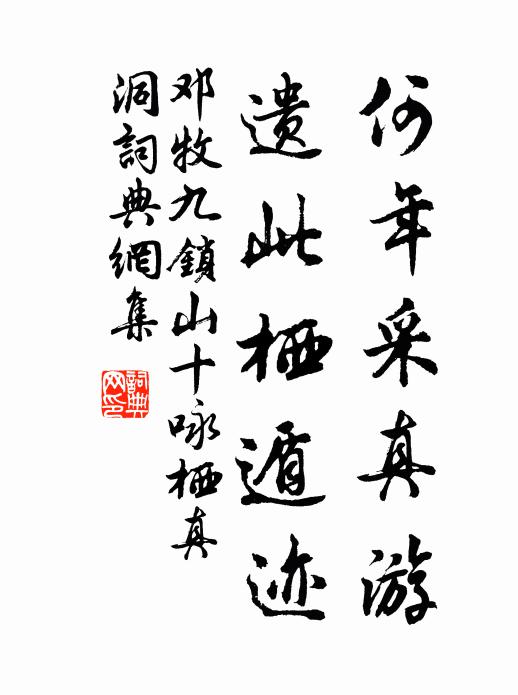 何年采真游
遗此栖遁迹
邓牧九鎖山十咏栖真
洞詞典網集
詞典網印